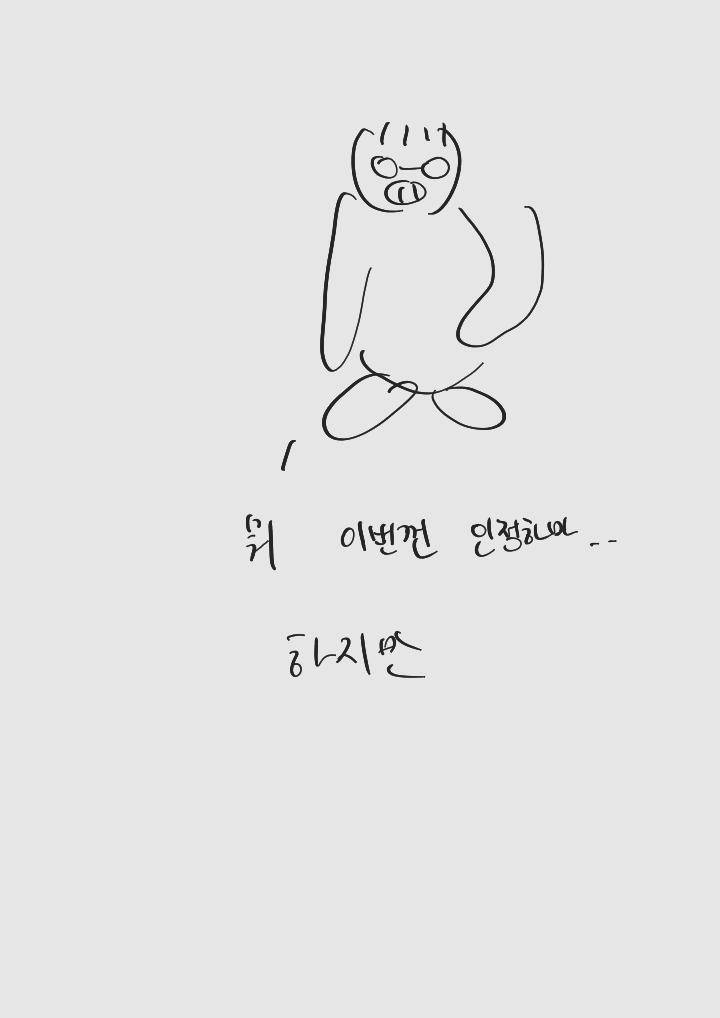 뭐 이번껀 인정하마..
하지만